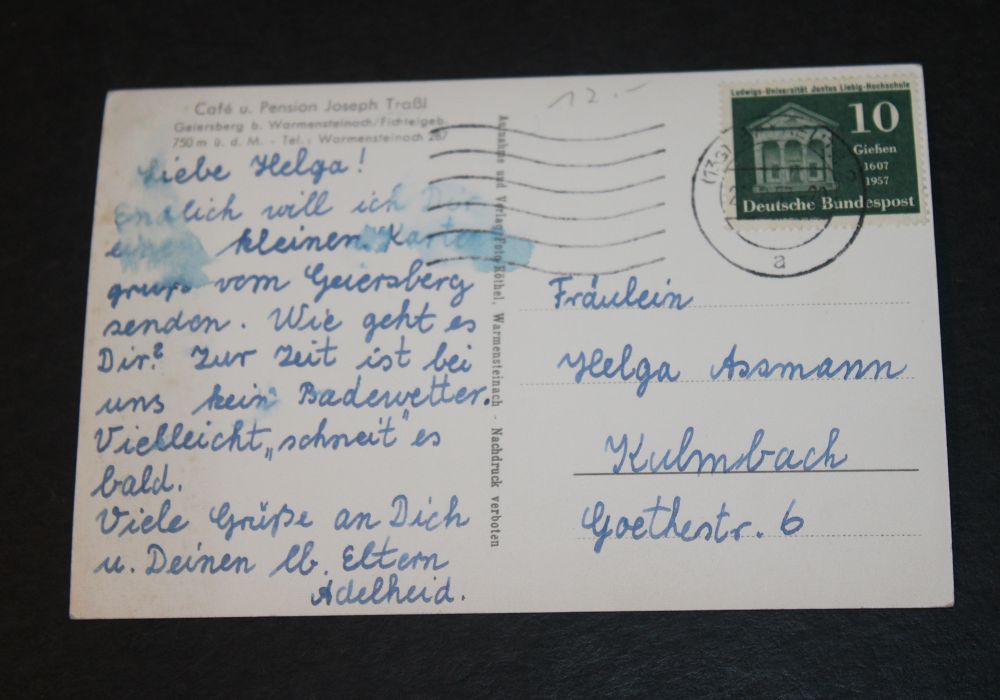 Café u. Pension Joseph Traßl
Geiersberg b. Warmensteinach/Fichtelgeb.
750 m ü. d. M. - Tel.: Warmensteinach 267
12.-
Liebe Helga!
Endlich will ich Dir
einen kleinen Karten
gruß vom Geiersberg
senden. Wie geht es
Dir? Zur Zeit ist bei
uns kein Badewetter.
Vielleicht „schneit" es
bald.
Viele Grüße an Dich
u. Deinen lb. Eltern
Adelheid.
Aufnahme und Verlag: Foto-Röthel, Warmensteinach - Nachdruck verboten
Ludwigs-Universität Justus Liebig-Hochschule
10
Gießen
1607
1957
Deutsche Bundespost
a
Fräulein
Helga Assmann
Kulmbach
Goethestr. 6